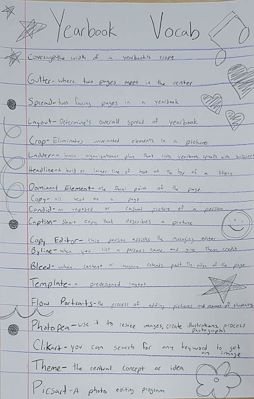 Yearbook Vocab
Coverage-the width of a yearbook's scope
Gutter-where two pages meet in the center
Spread-two facing pages in a yearbook
Layout-Determines overall spread of yearbook
Crop-Eliminates unwanted elements in a picture
Ladder-a organizational plan that lists yearbook spreads with
Headline-A bold or larger line of text at the top of a
Dominant Element-the focal point of the page
Copy-all text on a page
Candid-an unposed or casual picture of a person
Caption-Short copy that describes a picture
Copy Editor-this person assists the managing editor
Byline-when you list a persons name and give them credit
Bleed-when content or images extends past the edge of the page
Template-a predesigned layout
Flow Portraits-the process of adding pictures and names of students
PhotoPea-use it to resize images, create illustrations, process photographs
ClipArt-you can search for any keyword to get an image
Theme-the central concept or idea
Picsart-A photo editing program